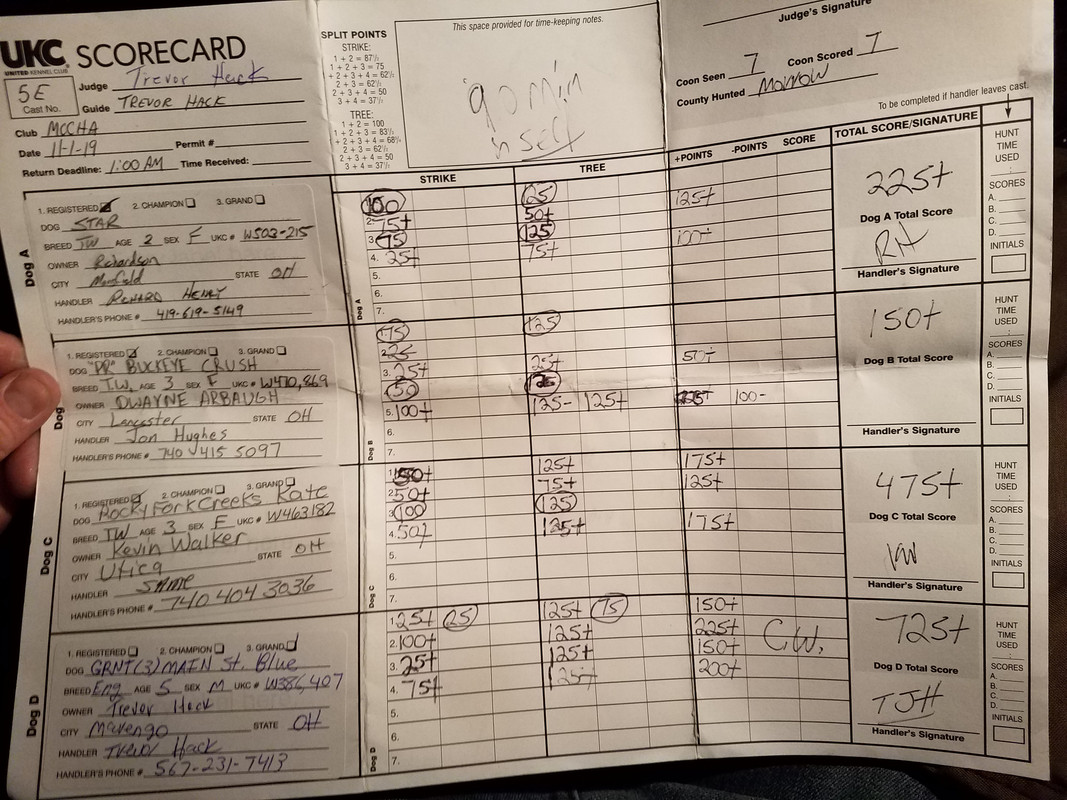 UKC SCORECARD
UNITED KENNEL CLUB
5E
Cast No.
Judge Trevor Hack
Guide TREVOR HACK
Club MCCHA
Date 11-1-19 Permit #
Return Deadline: 1:00 AM Time Received:
SPLIT POINTS
STRIKE:
1 + 2 = 87½
1 + 2 + 3 = 75
+ 2 + 3 + 4 = 62½
2 + 3 = 62½
2 + 3 + 4 = 50
3 + 4 = 37½
TREE:
1 + 2 = 100
1 + 2 + 3 = 83⅓
+ 2 + 3 + 4 = 68¾
2 + 3 = 62½
2 + 3 + 4 = 50
3 + 4 = 37½
This space provided for time-keeping notes.
90 min
Judge's Signature
Coon Seen 7 Coon Scored 7
County Hunted Morrow
To be completed if handler leaves cast.
STRIKE TREE +POINTS -POINTS SCORE TOTAL SCORE/SIGNATURE
Dog A
1. REGISTERED 2. CHAMPION 3. GRAND
DOG STAR
BREED TW AGE 2 SEX F UKC # W503-215
OWNER Richardson
CITY STATE OH
HANDLER RICHARD HENRY
HANDLER'S PHONE # 419-619-5149
1. 100 125 125+
2. 75+ 50+
3. 75 125 100+
4. 25+ 75+
5.
6.
7.
225+
Dog A Total Score
RH
Handler's Signature
HUNT TIME USED
:
SCORES
A.
B.
C.
D.
INITIALS
Dog B
1. REGISTERED 2. CHAMPION 3. GRAND
DOG "PR" BUCKEYE CRUSH
BREED T.W. AGE 3 SEX F UKC # W470,869
OWNER DWAYNE ARBAUGH
CITY Lancaster STATE OH
HANDLER Jon Hughes
HANDLER'S PHONE # 740 415 5097
1. 75 125
2.
3. 25+ 25+ 50+
4. 50
5. 100+ 125- 125+ 225+ 100-
6.
7.
150+
Dog B Total Score
Handler's Signature
HUNT TIME USED
:
SCORES
A.
B.
C.
D.
INITIALS
Dog C
1. REGISTERED 2. CHAMPION 3. GRAND
DOG Rocky Fork Creeks Kate
BREED TW AGE 3 SEX F UKC # W463182
OWNER Kevin Walker
CITY Utica STATE OH
HANDLER SAME
HANDLER'S PHONE # 740 404 3036
1. 50+ 125+ 175+
2. 50+ 75+ 125+
3. 100 125
4. 50+ 125+ 175+
5.
6.
7.
475+
Dog C Total Score
KW
Handler's Signature
HUNT TIME USED
:
SCORES
A.
B.
C.
D.
INITIALS
Dog D
1. REGISTERED 2. CHAMPION 3. GRAND
DOG GRNT(3) MAIN St. Blue
BREED Eng AGE 5 SEX M UKC # W386,407
OWNER Trevor Hack
CITY Marengo STATE OH
HANDLER Trevor Hack
HANDLER'S PHONE # 567-231-7413
1. 25+ 25 125+ 75 150+
2. 100+ 125+ 225+ C.W.
3. 25+ 125+ 150+
4. 75+ 125+ 200+
5.
6.
7.
725+
Dog D Total Score
TJH
Handler's Signature
HUNT TIME USED
:
SCORES
A.
B.
C.
D.
INITIALS